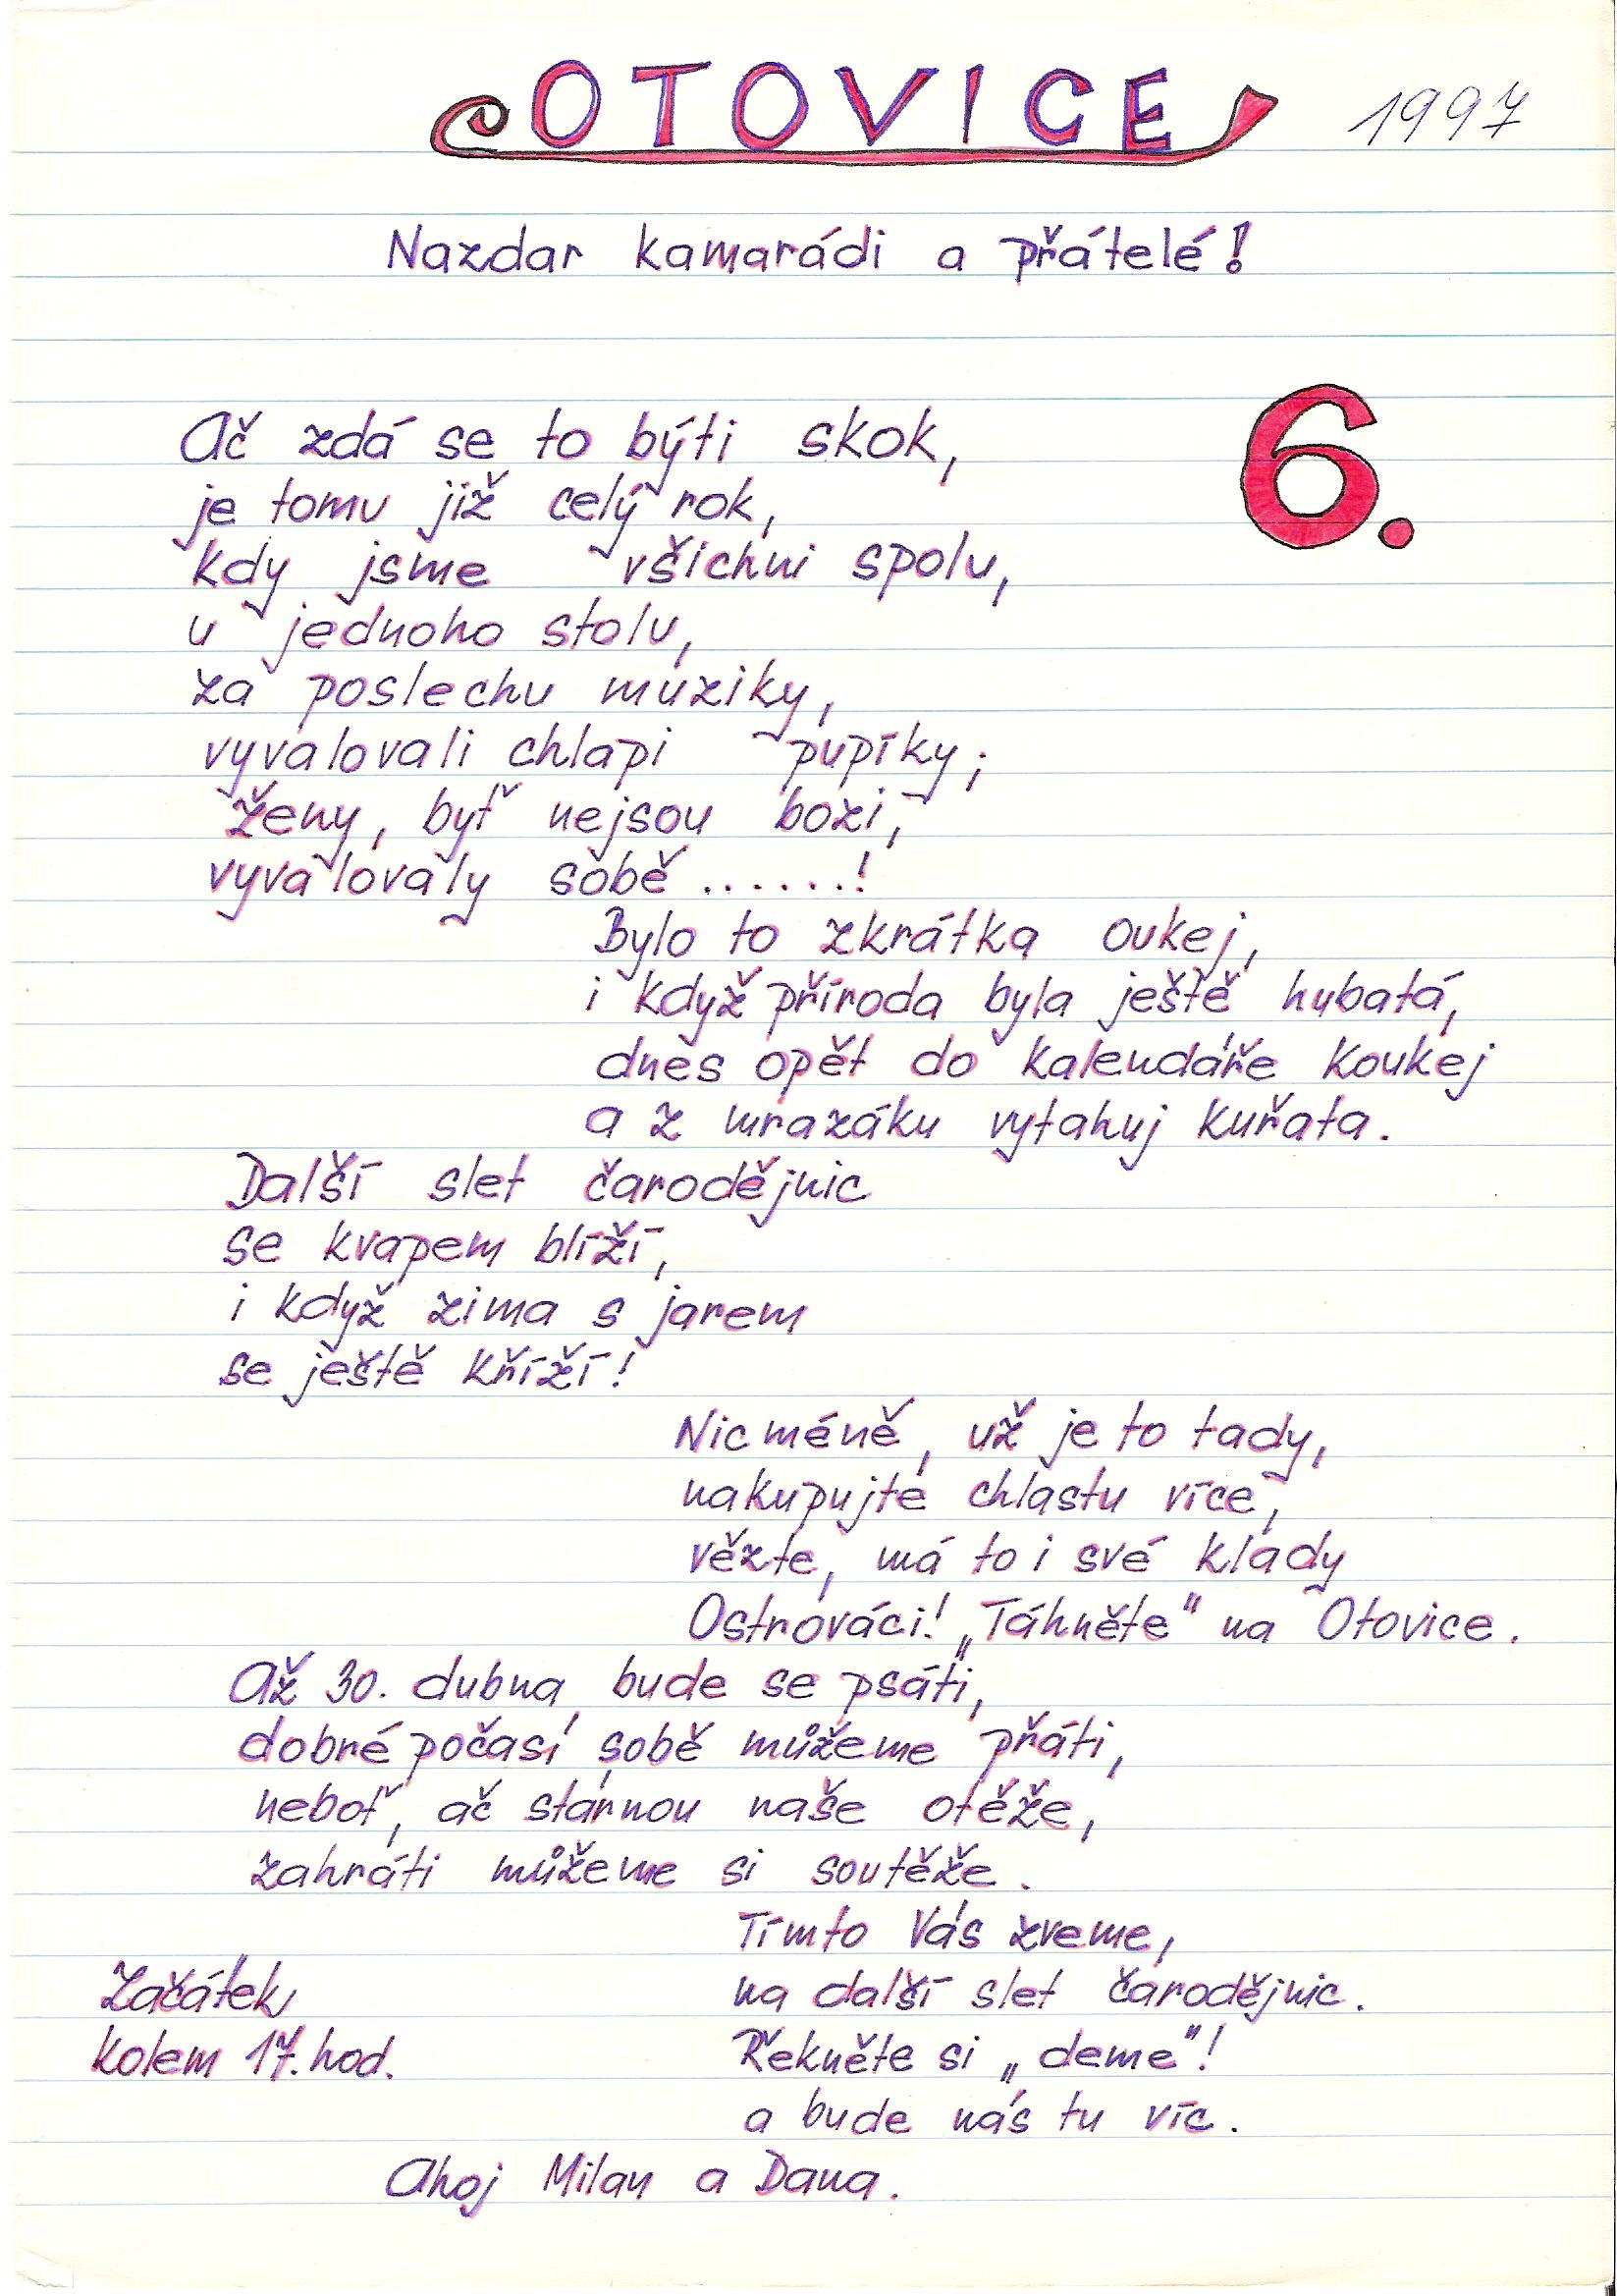 OTOVICE 1997
Nazdar kamarádi a přátelé!
6.
Ač zdá se to býti skok,
je tomu již celý rok,
kdy jsme všichni spolu,
u jednoho stolu,
za poslechu muziky,
vyvalovali chlapi pupíky;
ženy, byť nejsou bozi,
vyvalovaly sobě .......!
Bylo to zkrátka oukej,
i když příroda byla ještě hubatá,
dnes opět do kalendáře koukej
a z mrazáku vytahuj kuřata.
Další slet čarodějnic
se kvapem blíží,
i když zima s jarem
se ještě kříží!
Nicméně, už je to tady,
nakupujte chlastu více,
vězte, má to i své klady
Ostrováci! „Táhněte" na Otovice.
Až 30. dubna bude se psáti,
dobré počasí sobě můžeme přáti,
neboť, ač stárnou naše otěže,
zahráti můžeme si soutěže.
Tímto Vás zveme,
na další slet čarodějnic.
Řekněte si „deme"!
a bude nás tu víc.
Začátek
kolem 17. hod.
Ahoj Milan a Dana.